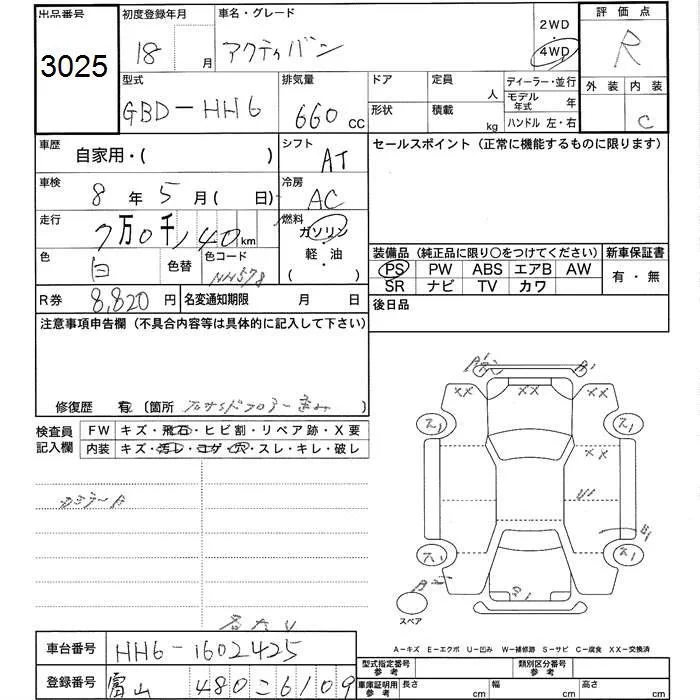 出品番号 初度登録年月 車名・グレード 2WD・4WD 評価点
3025 18 月 アクティバン R
型式 排気量 ドア 定員 人 ディーラー・並行 外装 内装
GBD-HH6 660 cc 形状 積載 kg モデル年式 年 ハンドル 左・右 C
車歴 自家用・( ) シフト AT セールスポイント(正常に機能するものに限ります)
車検 8年5月( 日) 冷房 AC
走行 7万0千140km 燃料 ガソリン 軽・油 ( )
色 白 色替 色コード NH578
装備品(純正品に限り○をつけてください) 新車保証書
PS PW ABS エアB AW 有・無
SR ナビ TV カワ
R券 8,820円 名変通知期限 月 日 後日品
注意事項申告欄(不具合内容等は具体的に記入して下さい)
修復歴 有 〔箇所 〕
検査員記入欄 FW キズ・飛石・ヒビ割・リペア跡・X要
内装 キズ・汚レ・コゲ・穴・スレ・キレ・破レ
XX XX
XX
スペア
A-キズ E-エクボ U-凹み W-補修跡 S-サビ C-腐食 XX-交換済
車台番号 HH6-1602425
型式指定番号 参考 類別区分番号 参考
登録番号 富山 480 こ 6109
車庫証明用 参考 長さ cm 幅 cm 高さ cm